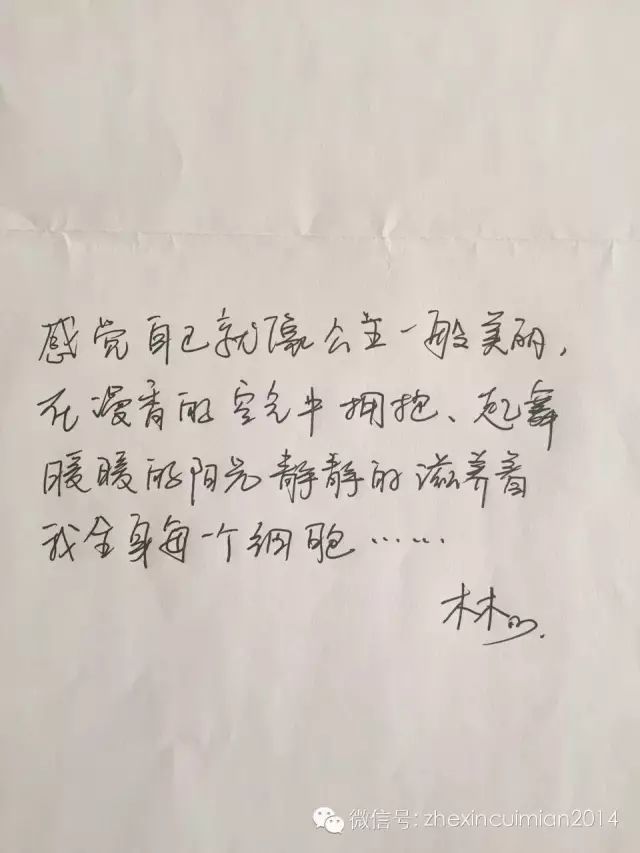 感觉自己就像公主一般美丽，
在漫香的空气中拥抱、起舞
暖暖的阳光静静的滋养着
我全身每一个细胞……
林
微信号: zhexincuimian2014